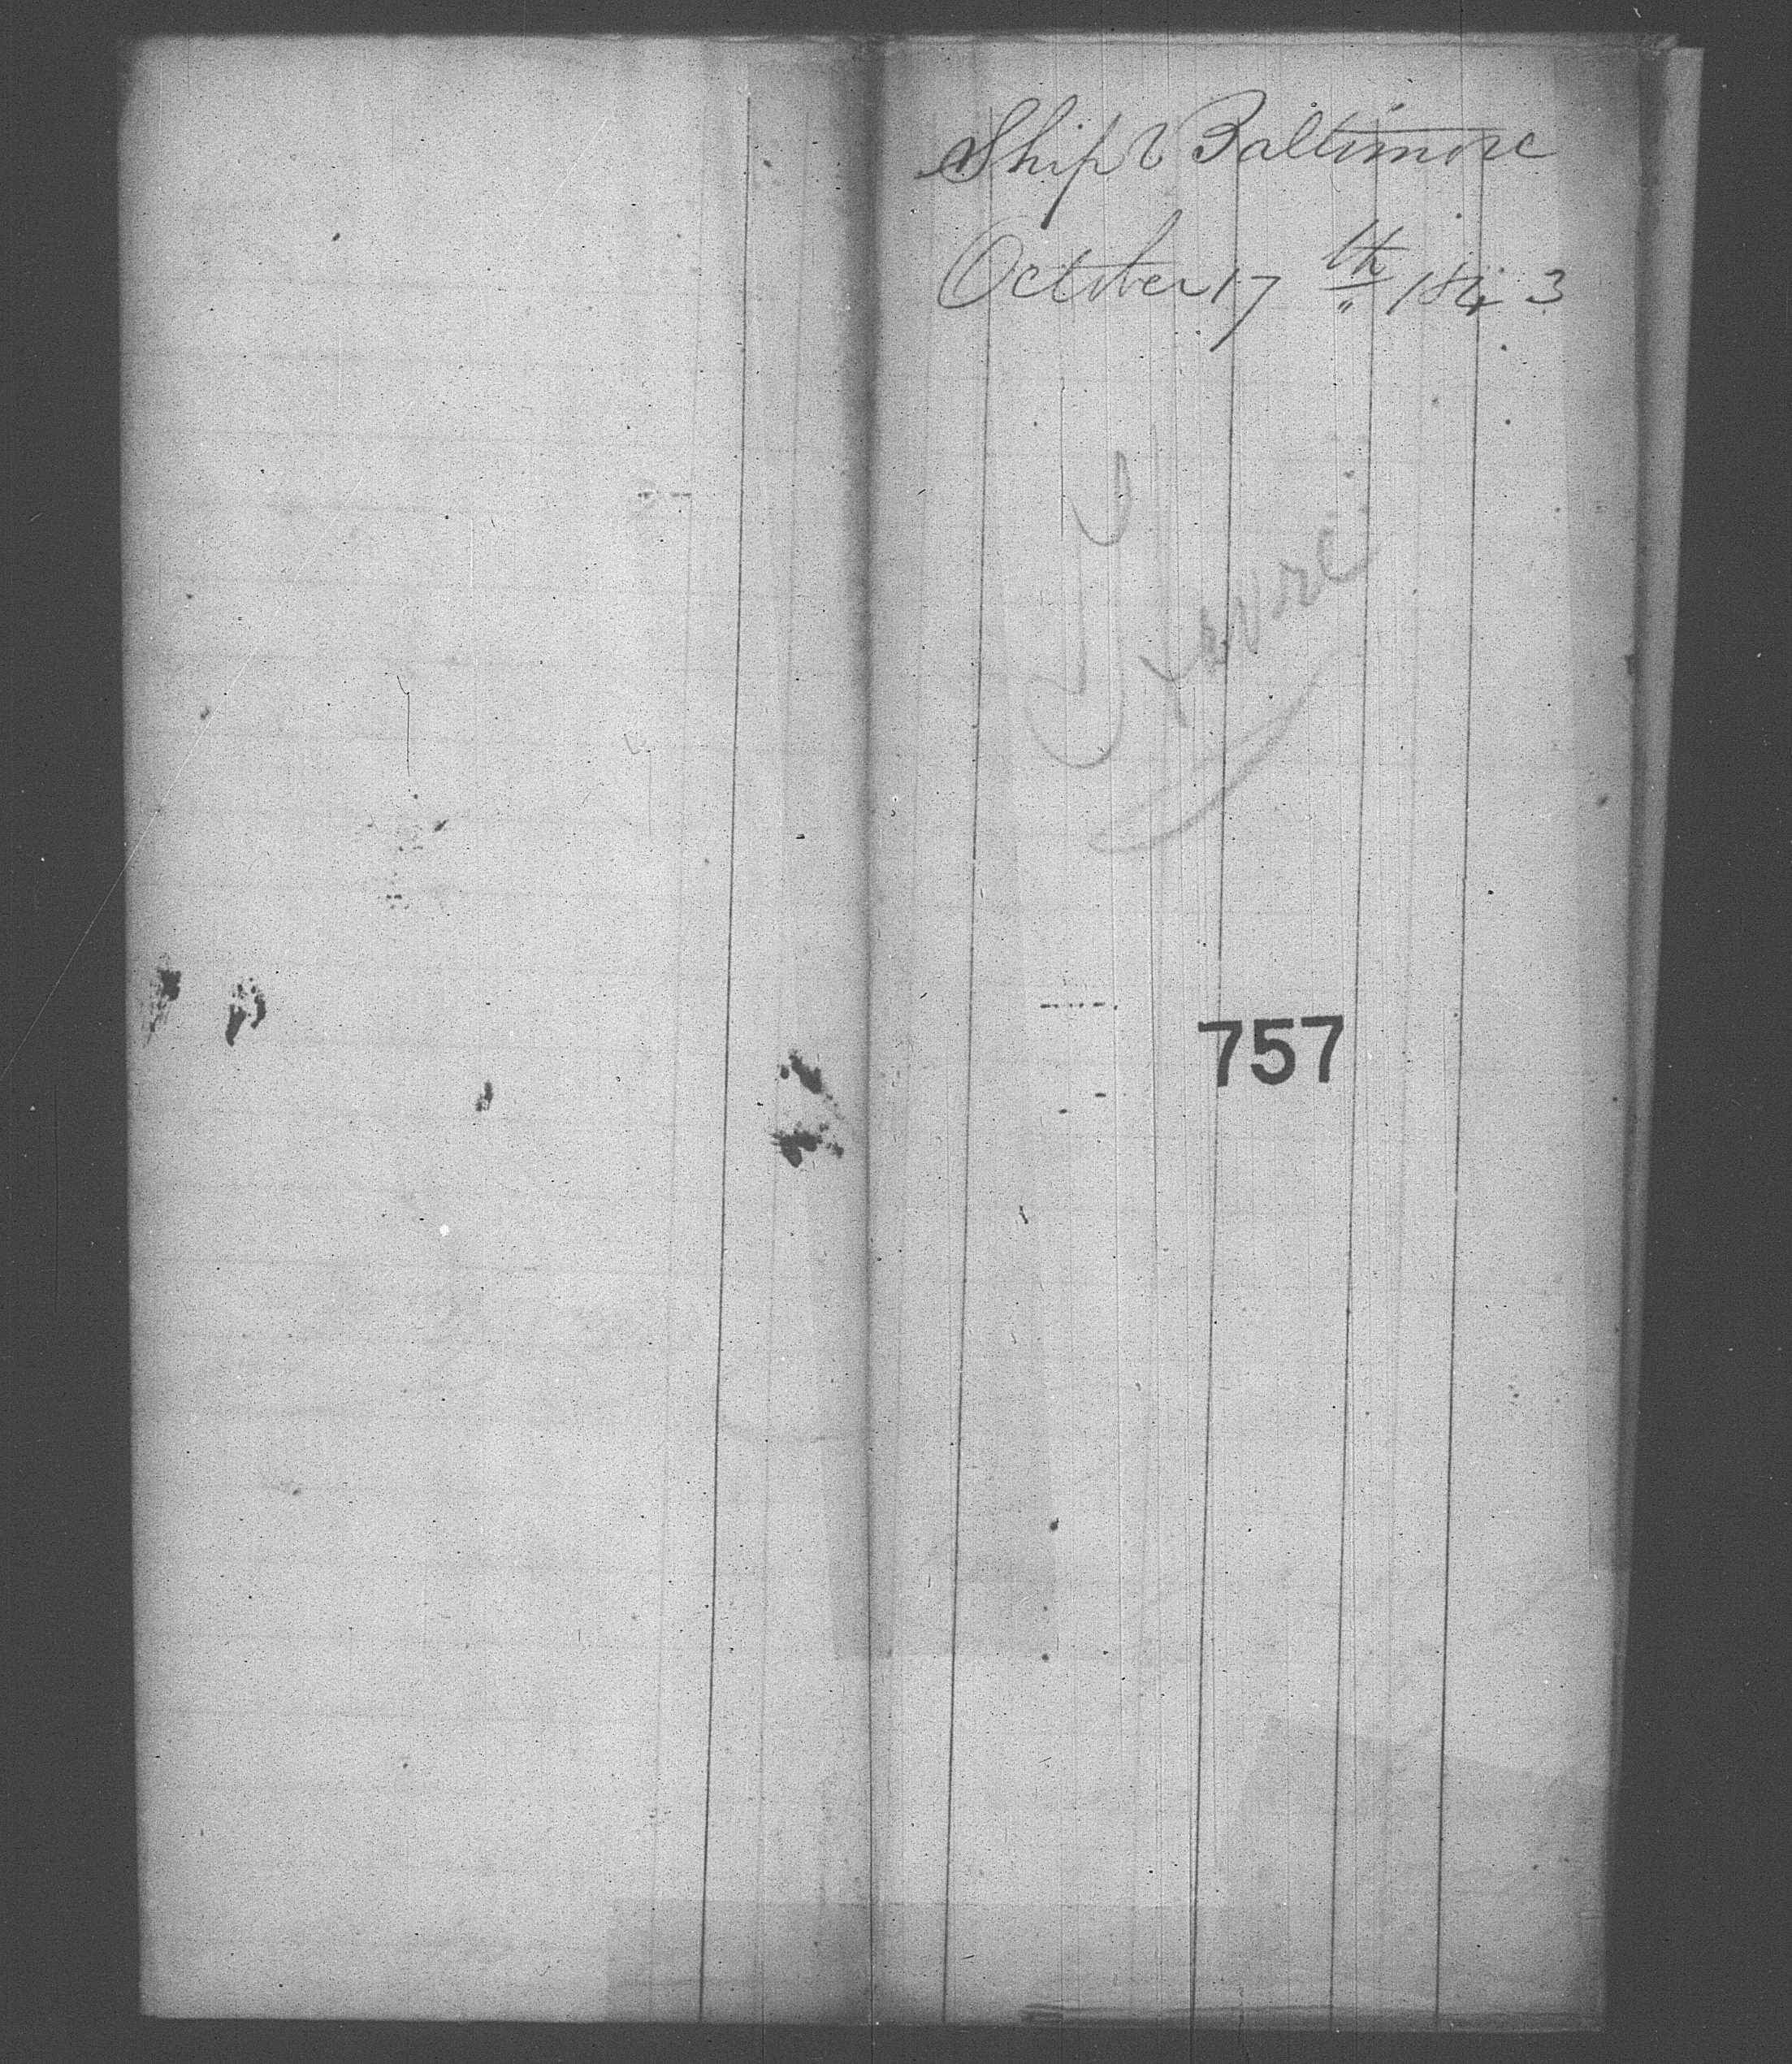 Ship Baltimore
October 17th 1843
Havre
757